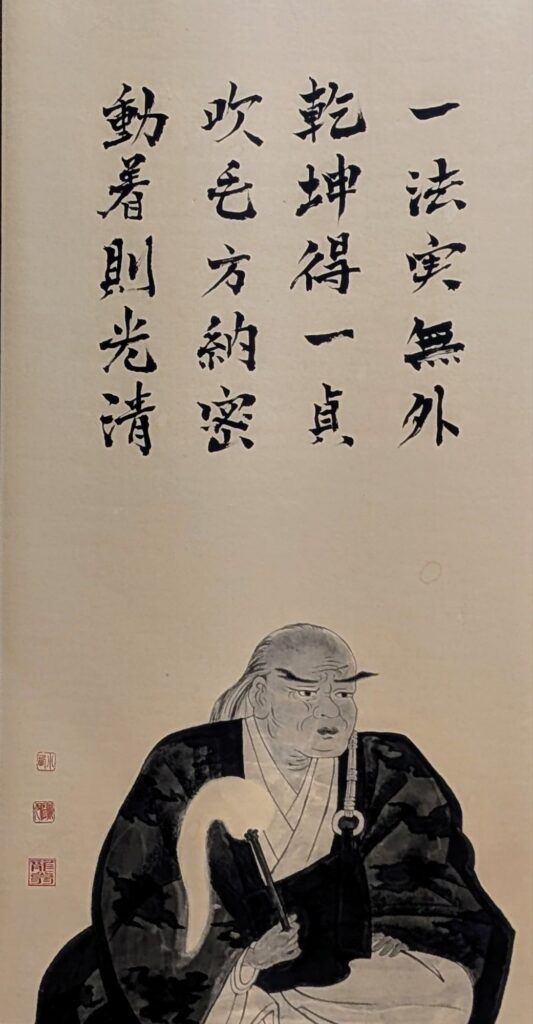 一法実無外
乾坤得一貞
吹毛方納密
動着則光清